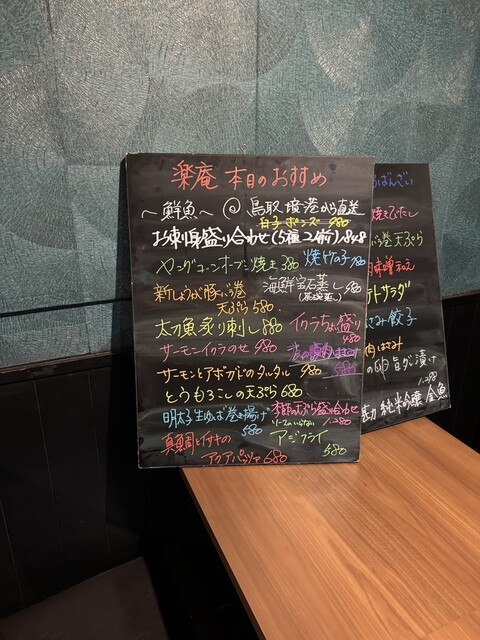 楽庵 本日のおすすめ
～鮮魚～ @ 鳥取 境港から直送
白子ポン酢 980
お刺身盛り合わせ(5種2人前)1,848
ヤングコーンオーブン焼き 380
焼竹の子 780
新しょうが豚バラ巻天ぷら 580
海鮮宝石蒸し 480
太刀魚炙り刺し 880
イクラちょい盛り 480
サーモンイクラのせ 980
サーモンとアボカドのタルタル 980
580
とうもろこしの天ぷら 680
明太子生ゆば巻き揚げ 580
季節の天ぷら盛り合わせ
真鯛とイサキのアクアパッツァ 680
アジフライ 580
おばんざい
焼きびたし
バラ巻 天ぷら
味噌和え
テトサラダ
はさみ餃子
肉はさみ
の卵 旨ダシ漬け
純米吟醸 金魚